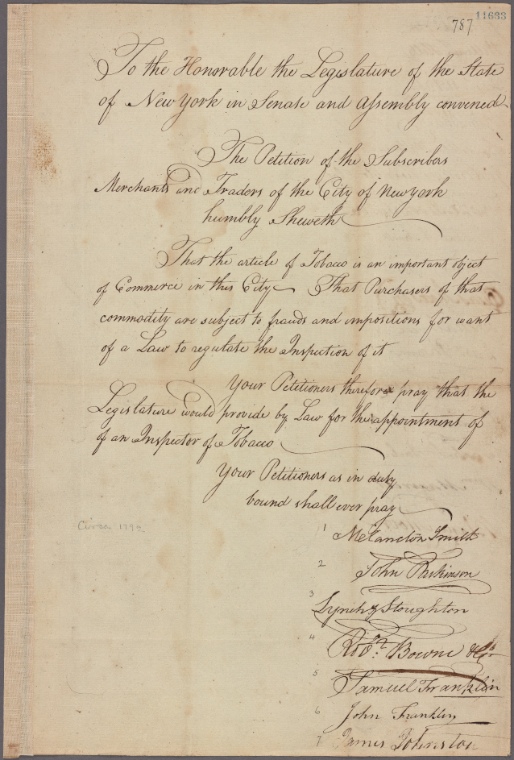 787
11633
To the Honorable the Legislature of the State
of New York in Senate and Assembly convened
The Petition of the Subscribers
Merchants and Traders of the City of New York
humbly Sheweth
That the article of Tobacco is an important object
of Commerce in this City That Purchasers of that
commodity are subject to frauds and impositions for want
of a Law to regulate the Inspection of it
Your Petitioners therefore pray that the
Legislature would provide by Law for the appointment of
of an Inspector of Tobacco
Your Petitioners as in duty
bound shall ever pray
Circa
1 Melancton Smith
2 John Parkinson
3 Lynch & Stoughton
4 Bowne & Co
5 Samuel Franklin
6 John Franklin
7 James Johnston